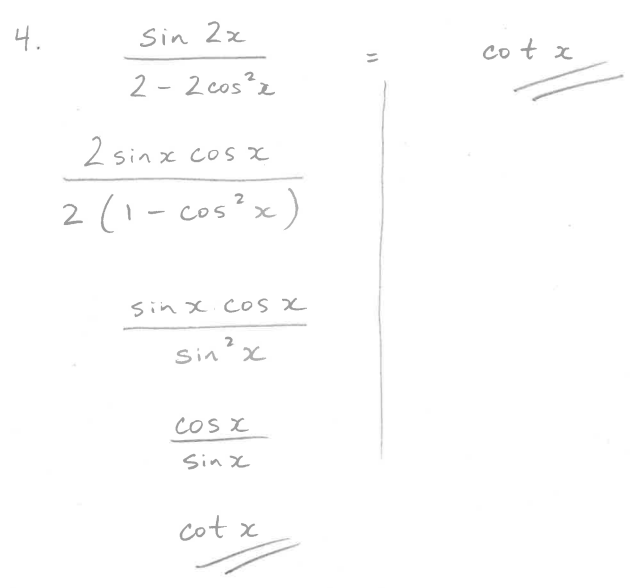 4. sin 2x / 2 - 2cos²x = cot x
2 sin x cos x / 2 (1 - cos² x)
sin x cos x / sin² x
cos x / sin x
cot x